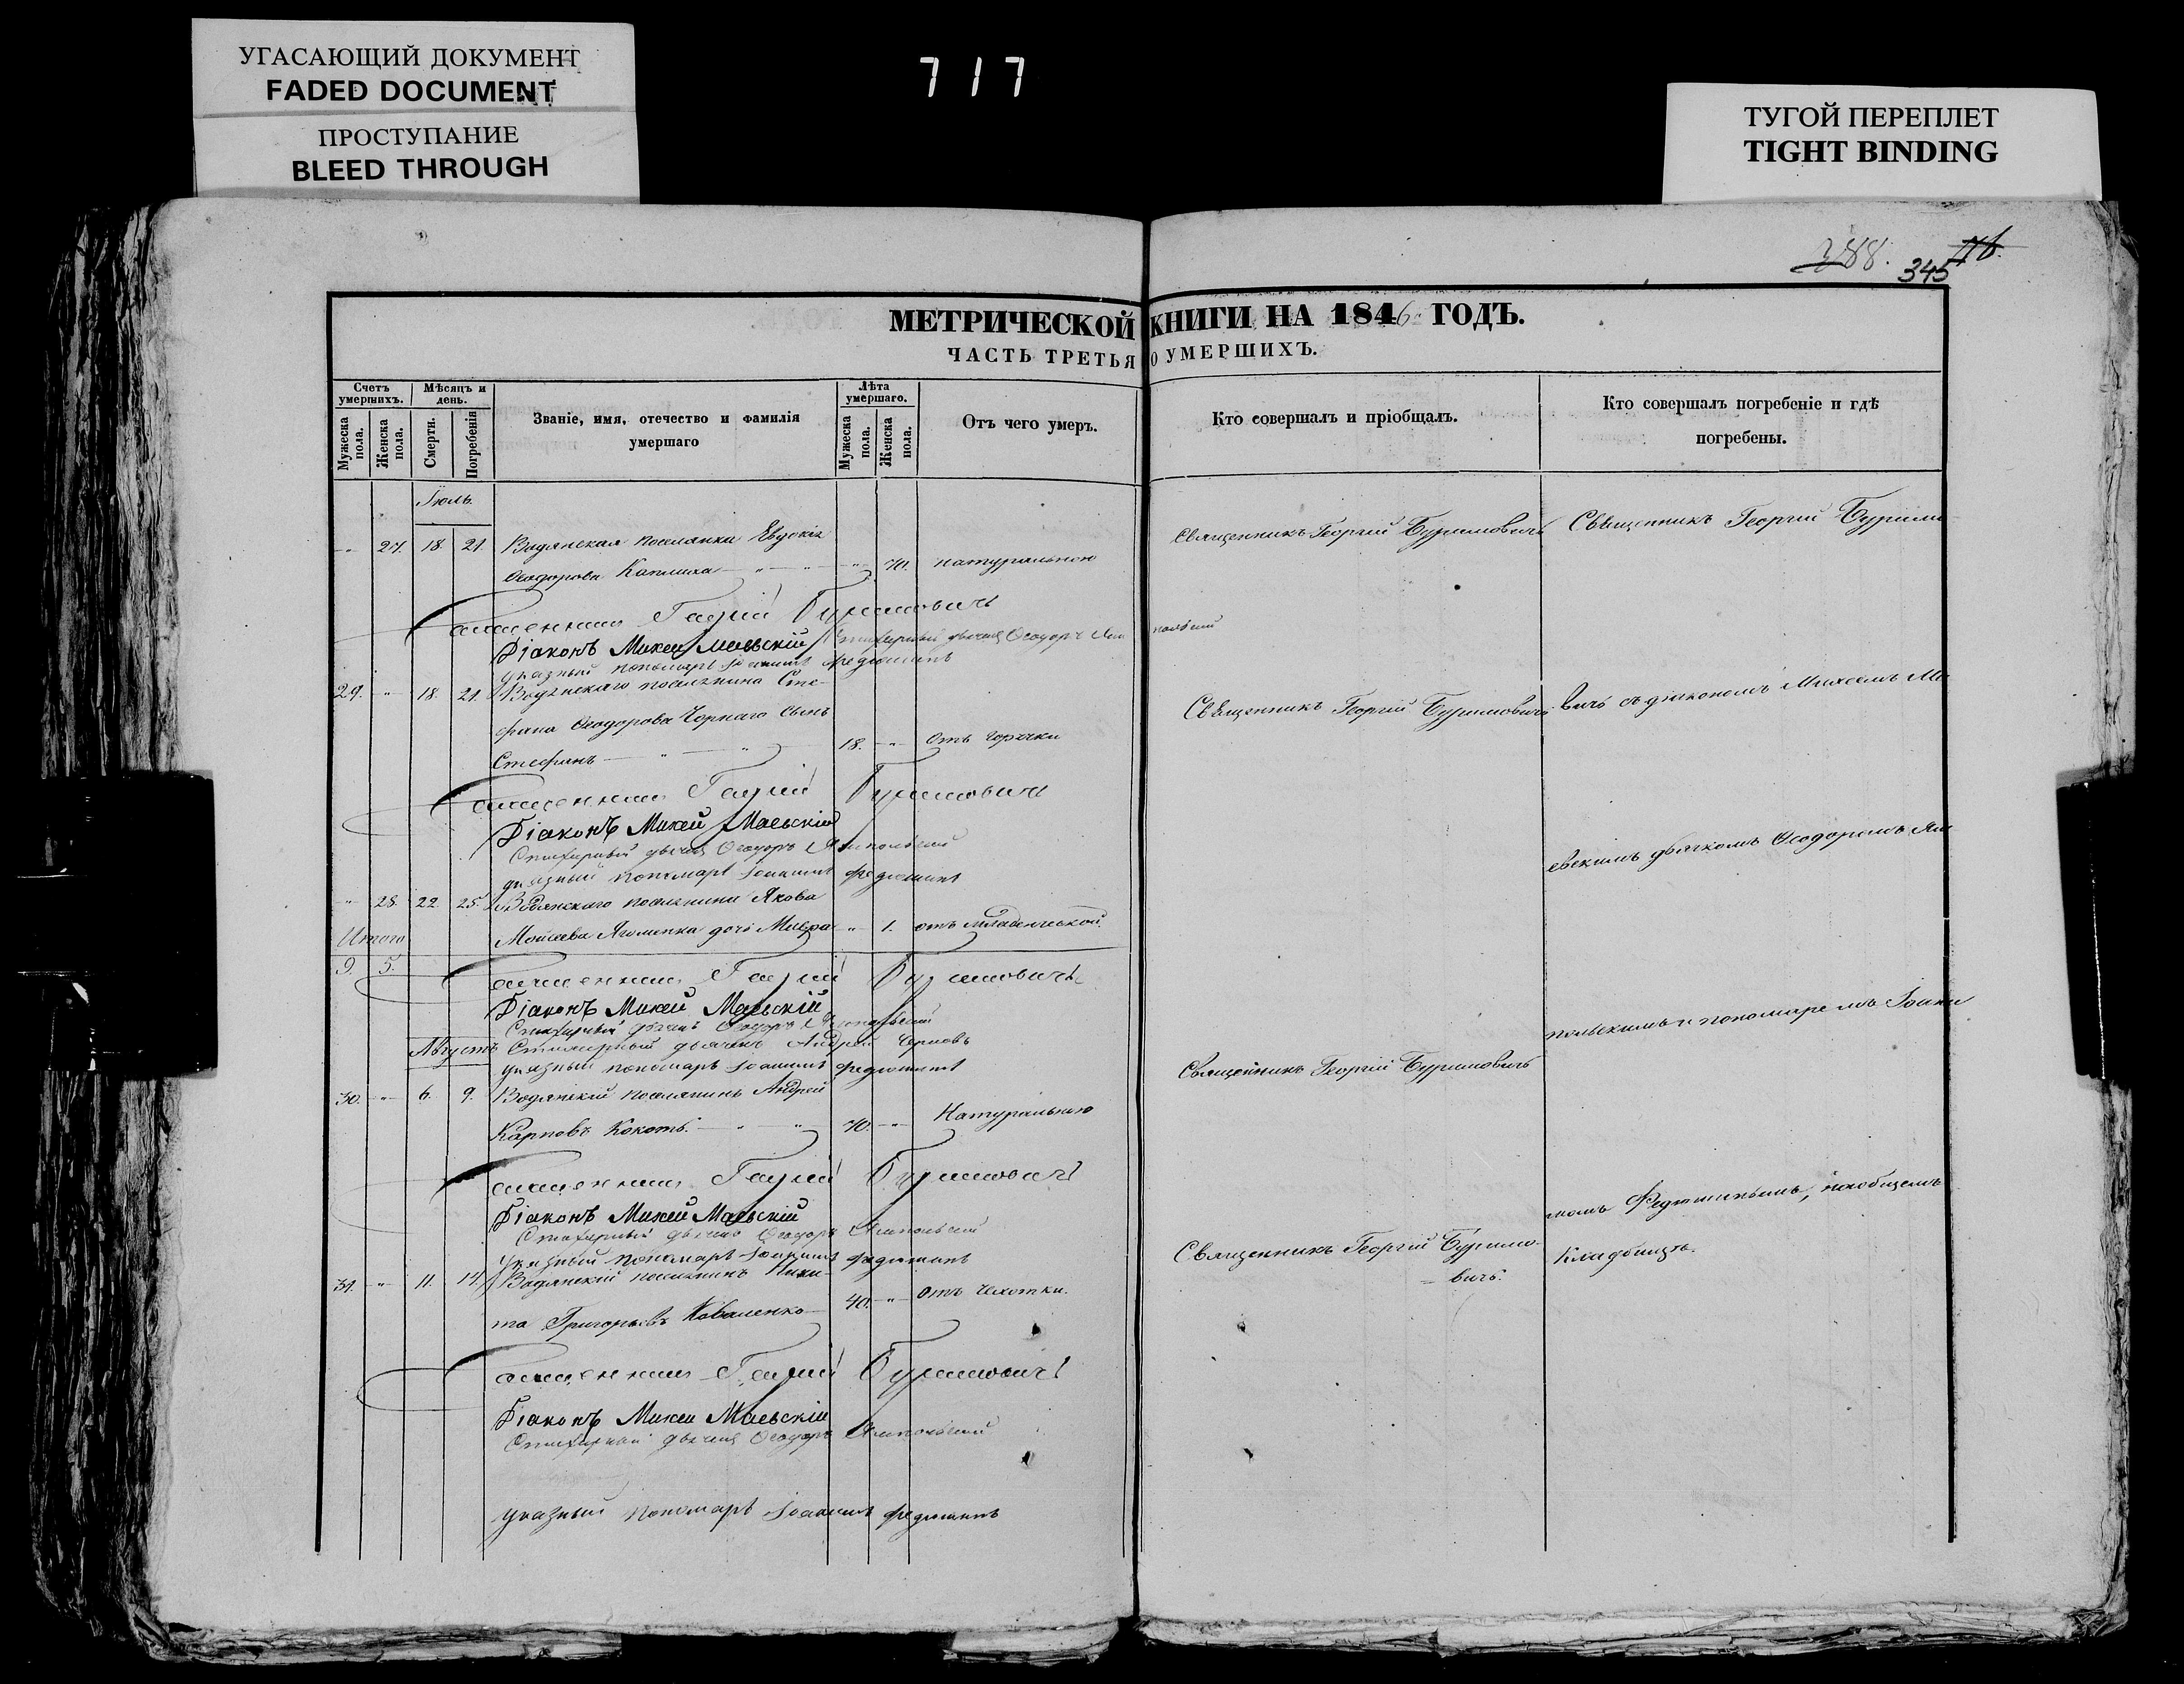 УГАСАЮЩИЙ ДОКУМЕНТ
FADED DOCUMENT
ПРОСТУПАНИЕ
BLEED THROUGH
717
ТУГОЙ ПЕРЕПЛЕТ
TIGHT BINDING
388.
345
МЕТРИЧЕСКОЙ КНИГИ НА 1846 ГОДЪ.
ЧАСТЬ ТРЕТЬЯ О УМЕРШИХЪ.
Счетъ умершихъ.
Мужеска пола.
Женска пола.
Мѣсяцъ и день.
Смерти.
Погребенія
Званіе, имя, отечество и фамилія умершаго
Лѣта умершаго.
Мужеска пола.
Женска пола.
Отъ чего умеръ.
Кто совершалъ и пріобщалъ.
Кто совершалъ погребеніе и гдѣ погребены.
Іюль.
27. 18. 21. Водянская поселянка Евдокія
Ѳеодорова 70. натурально
Священникъ Георгій Буримовичъ
Священникъ Георгій Буримо
Священникъ Георгій Буримовичъ
Діаконъ Михей Маевскій Стихарный дьячекъ Ѳеодоръ Ямпольскій
указный пономарь Іоакимъ Федюшинъ
29. 18. 21. Водянскаго поселянина Сте-
фана Ѳеодорова Чорнаго сынъ
Стефанъ 18. Отъ горячки
Священникъ Георгій Буримовичъ
вичъ съ діакономъ Михеемъ Ма
Священникъ Георгій Буримовичъ
Діаконъ Михей Маевскій
Стихарный дьячекъ Ѳеодоръ Ямпольскій
указный пономарь Іоакимъ Федюшинъ
евскимъ дьячкомъ Ѳеодоромъ Ям
28. 22. 25. Водянскаго поселянина Якова
Моисеева дочь 1. отъ младенческой.
Итого
9. 5.
Священникъ Георгій Буримовичъ
Діаконъ Михей Маевскій
Стихарный дьячекъ Ѳеодоръ Ямпольскій
Стихарный дьячекъ Андрей Черновъ
указный пономарь Іоакимъ Федюшинъ
польскимъ и пономаремъ Іоаки
Августъ
30. 6. 9. Водянскій поселянинъ Андрей
Карповъ Кокоть. 70. Натурально
Священникъ Георгій Буримовичъ
Священникъ Георгій Буримовичъ
Діаконъ Михей Маевскій
Стихарный дьячекъ Ѳеодоръ Ямпольскій
указный пономарь Іоакимъ Федюшинъ
момъ Федюшинымъ, на общемъ
кладбищѣ.
31. 11. 14. Водянскій поселянинъ Ники-
та Григорьевъ Коваленко 40. отъ чахотки.
Священникъ Георгій Буримо-
вичъ.
Священникъ Георгій Буримовичъ
Діаконъ Михей Маевскій
Стихарный дьячекъ Ѳеодоръ Ямпольскій
указный пономарь Іоакимъ Федюшинъ